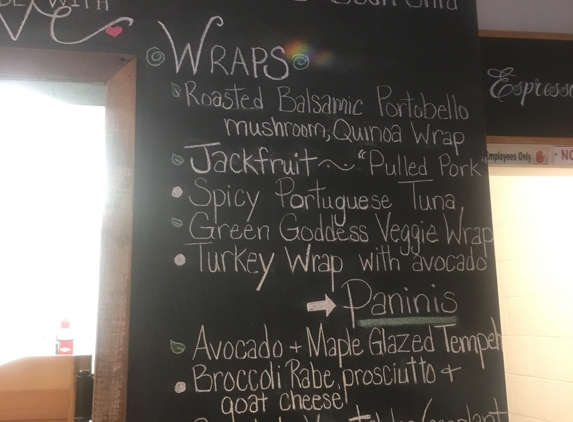 WITH
WRAPS
Roasted Balsamic Portobello
mushroom, Quinoa Wrap
Jackfruit ~ "Pulled Pork"
Spicy Portuguese Tuna
Green Goddess Veggie Wrap
Turkey Wrap with avocado
Paninis
Avocado + Maple Glazed Tempeh
Broccoli Rabe, prosciutto +
goat cheese
Espresso
Employees Only
NO